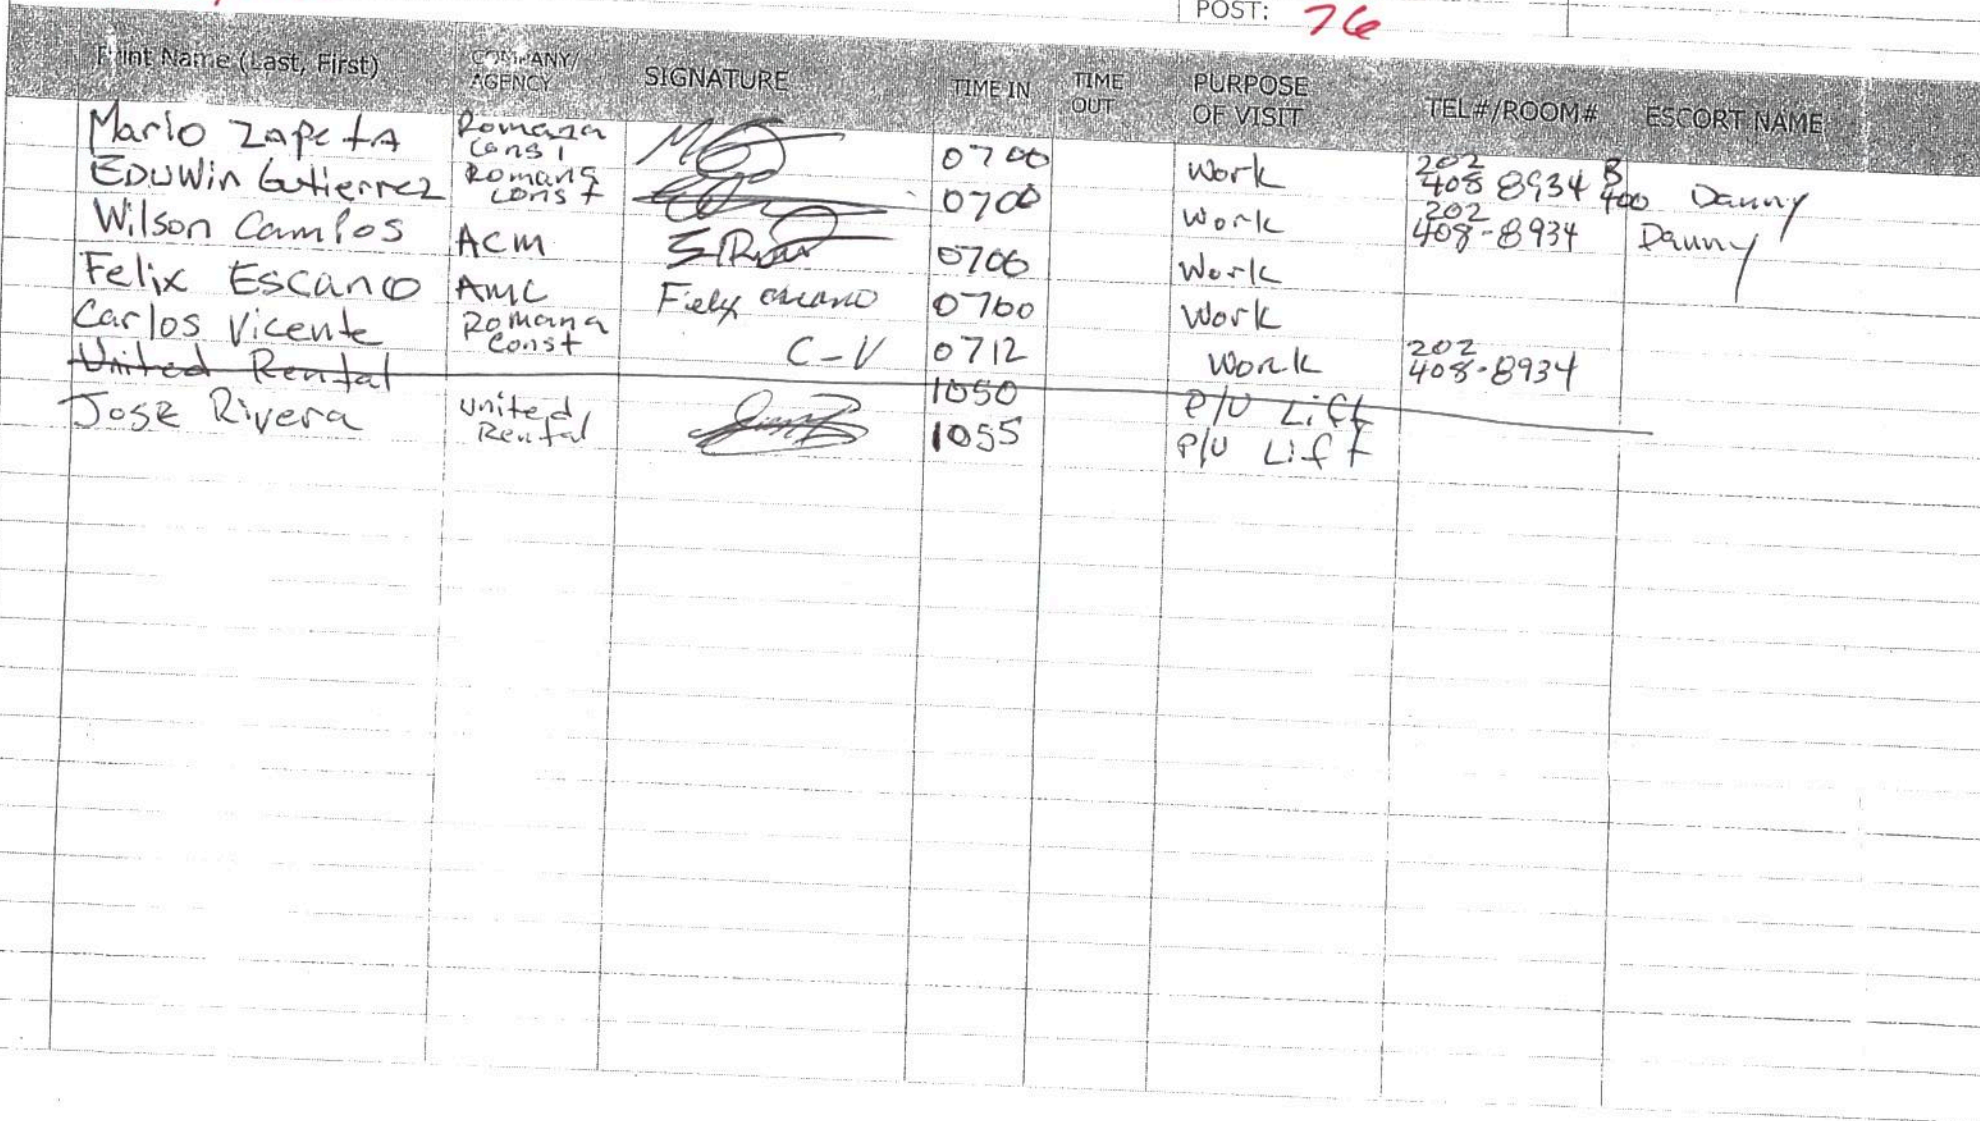 POST: 76
Print Name (Last, First) COMPANY/ AGENCY SIGNATURE TIME IN TIME OUT PURPOSE OF VISIT TEL#/ROOM# ESCORT NAME
Mario Zapeta Romana Const 0700 Work 202 408 8934 B 400 Danny
EDUWin Gutierrez Romana Const 0700 Work 202 408-8934 Danny
Wilson Campos ACM 0700 Work
Felix Escano AMC Fielx escano 0700 Work
Carlos Vicente Romana Const C-V 0712 Work 202 408-8934
United Rental 1050 P/U Lift
Jose Rivera United Rental 1055 P/U Lift